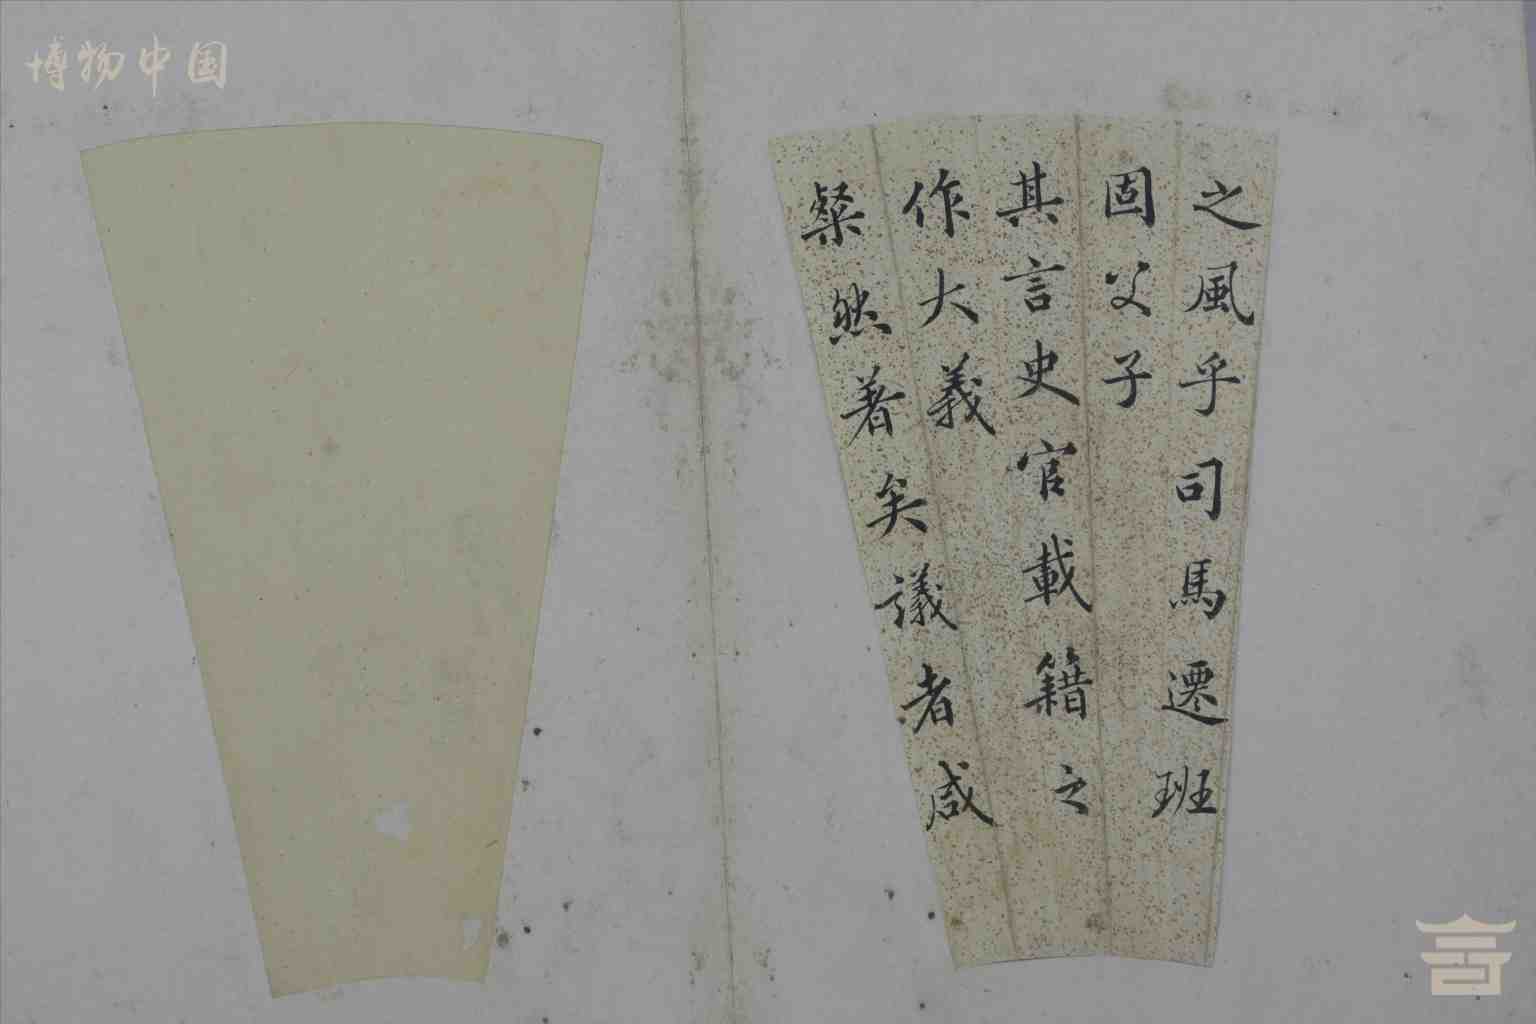 博物中国
之風乎司馬遷班
固父子
其言史官載籍之
作大義
粲然著矣議者咸